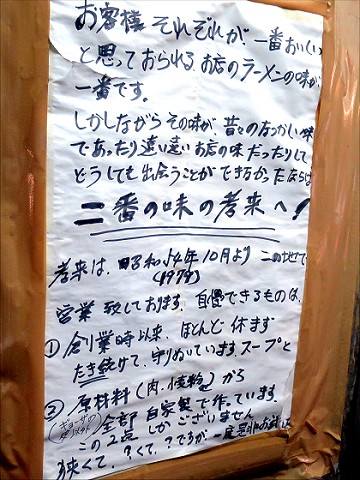 お客様 それぞれが、一番おいしい
と思っておられる、お店のラーメンの味が
一番です。
しかしながら その味が、昔々のなつかしい味
であったり遠い遠いお店の味だったりして
どうしても出会うことができなかったならば
二番の味の考来へ!
考来は、昭和54年10月より この地で
(1979)
営業致しております、自慢できるものは、
①創業時以来、ほとんど休まず
たき続けて、守りぬいています。スープと
②原材料(肉・焼粉)から
全部 自家製で作っています。
この2点しかございません
狭くて、?くて、?ですが 一度是非お試し